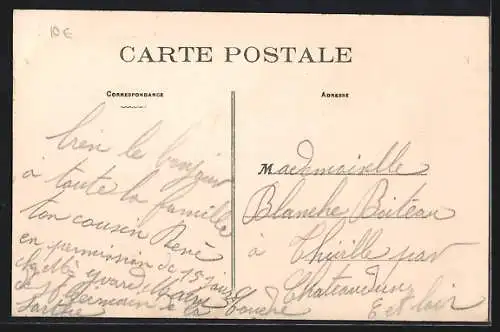 10 €
CARTE POSTALE
CORRESPONDANCE
ADRESSE
bien le bonjour
à toute la famille
ton cousin René
en permission de 15 jours
chez
St Germain à la Touche
Sarthe
Mademoiselle
Blanche Boiteau
à Thiville par
Chateaudun
E et loir